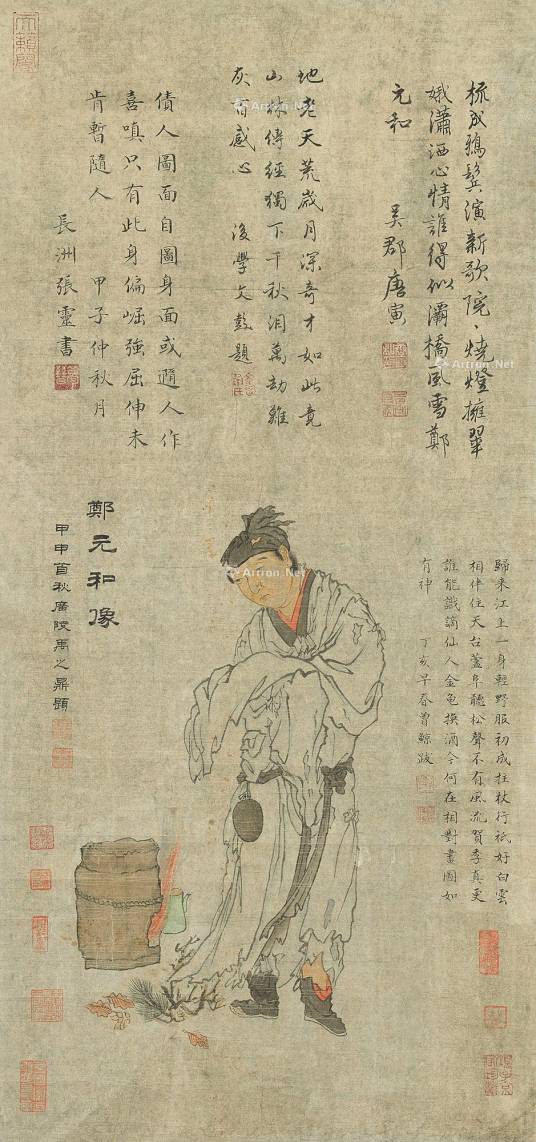 梳成鴉鬢演新歌院々燒燈擁翠
娥瀟洒心情誰得似灞橋風雪鄭
元和
吳郡唐寅
地老天荒歲月深奇才如此竟
山林傳經獨下千秋淚萬劫難
灰百感心 後學文鼓題
倩人圖面自圖身面或隨人作
喜嗔只有此身偏崛強屈伸未
肯暫隨人 甲子仲秋月
長洲張靈書
鄭元和像
甲申首秋廣陵禹之鼎題
歸來江上一身輕野服初成拄杖行祇好白雲
相伴住天台蓋阜聽松聲不有風流賀季真更
誰能識謫仙人金龜換酒今何在相對畫圖如
有神 丁亥早春曾鯨跋
Artron.Net
Artron.Net
Artron.Net